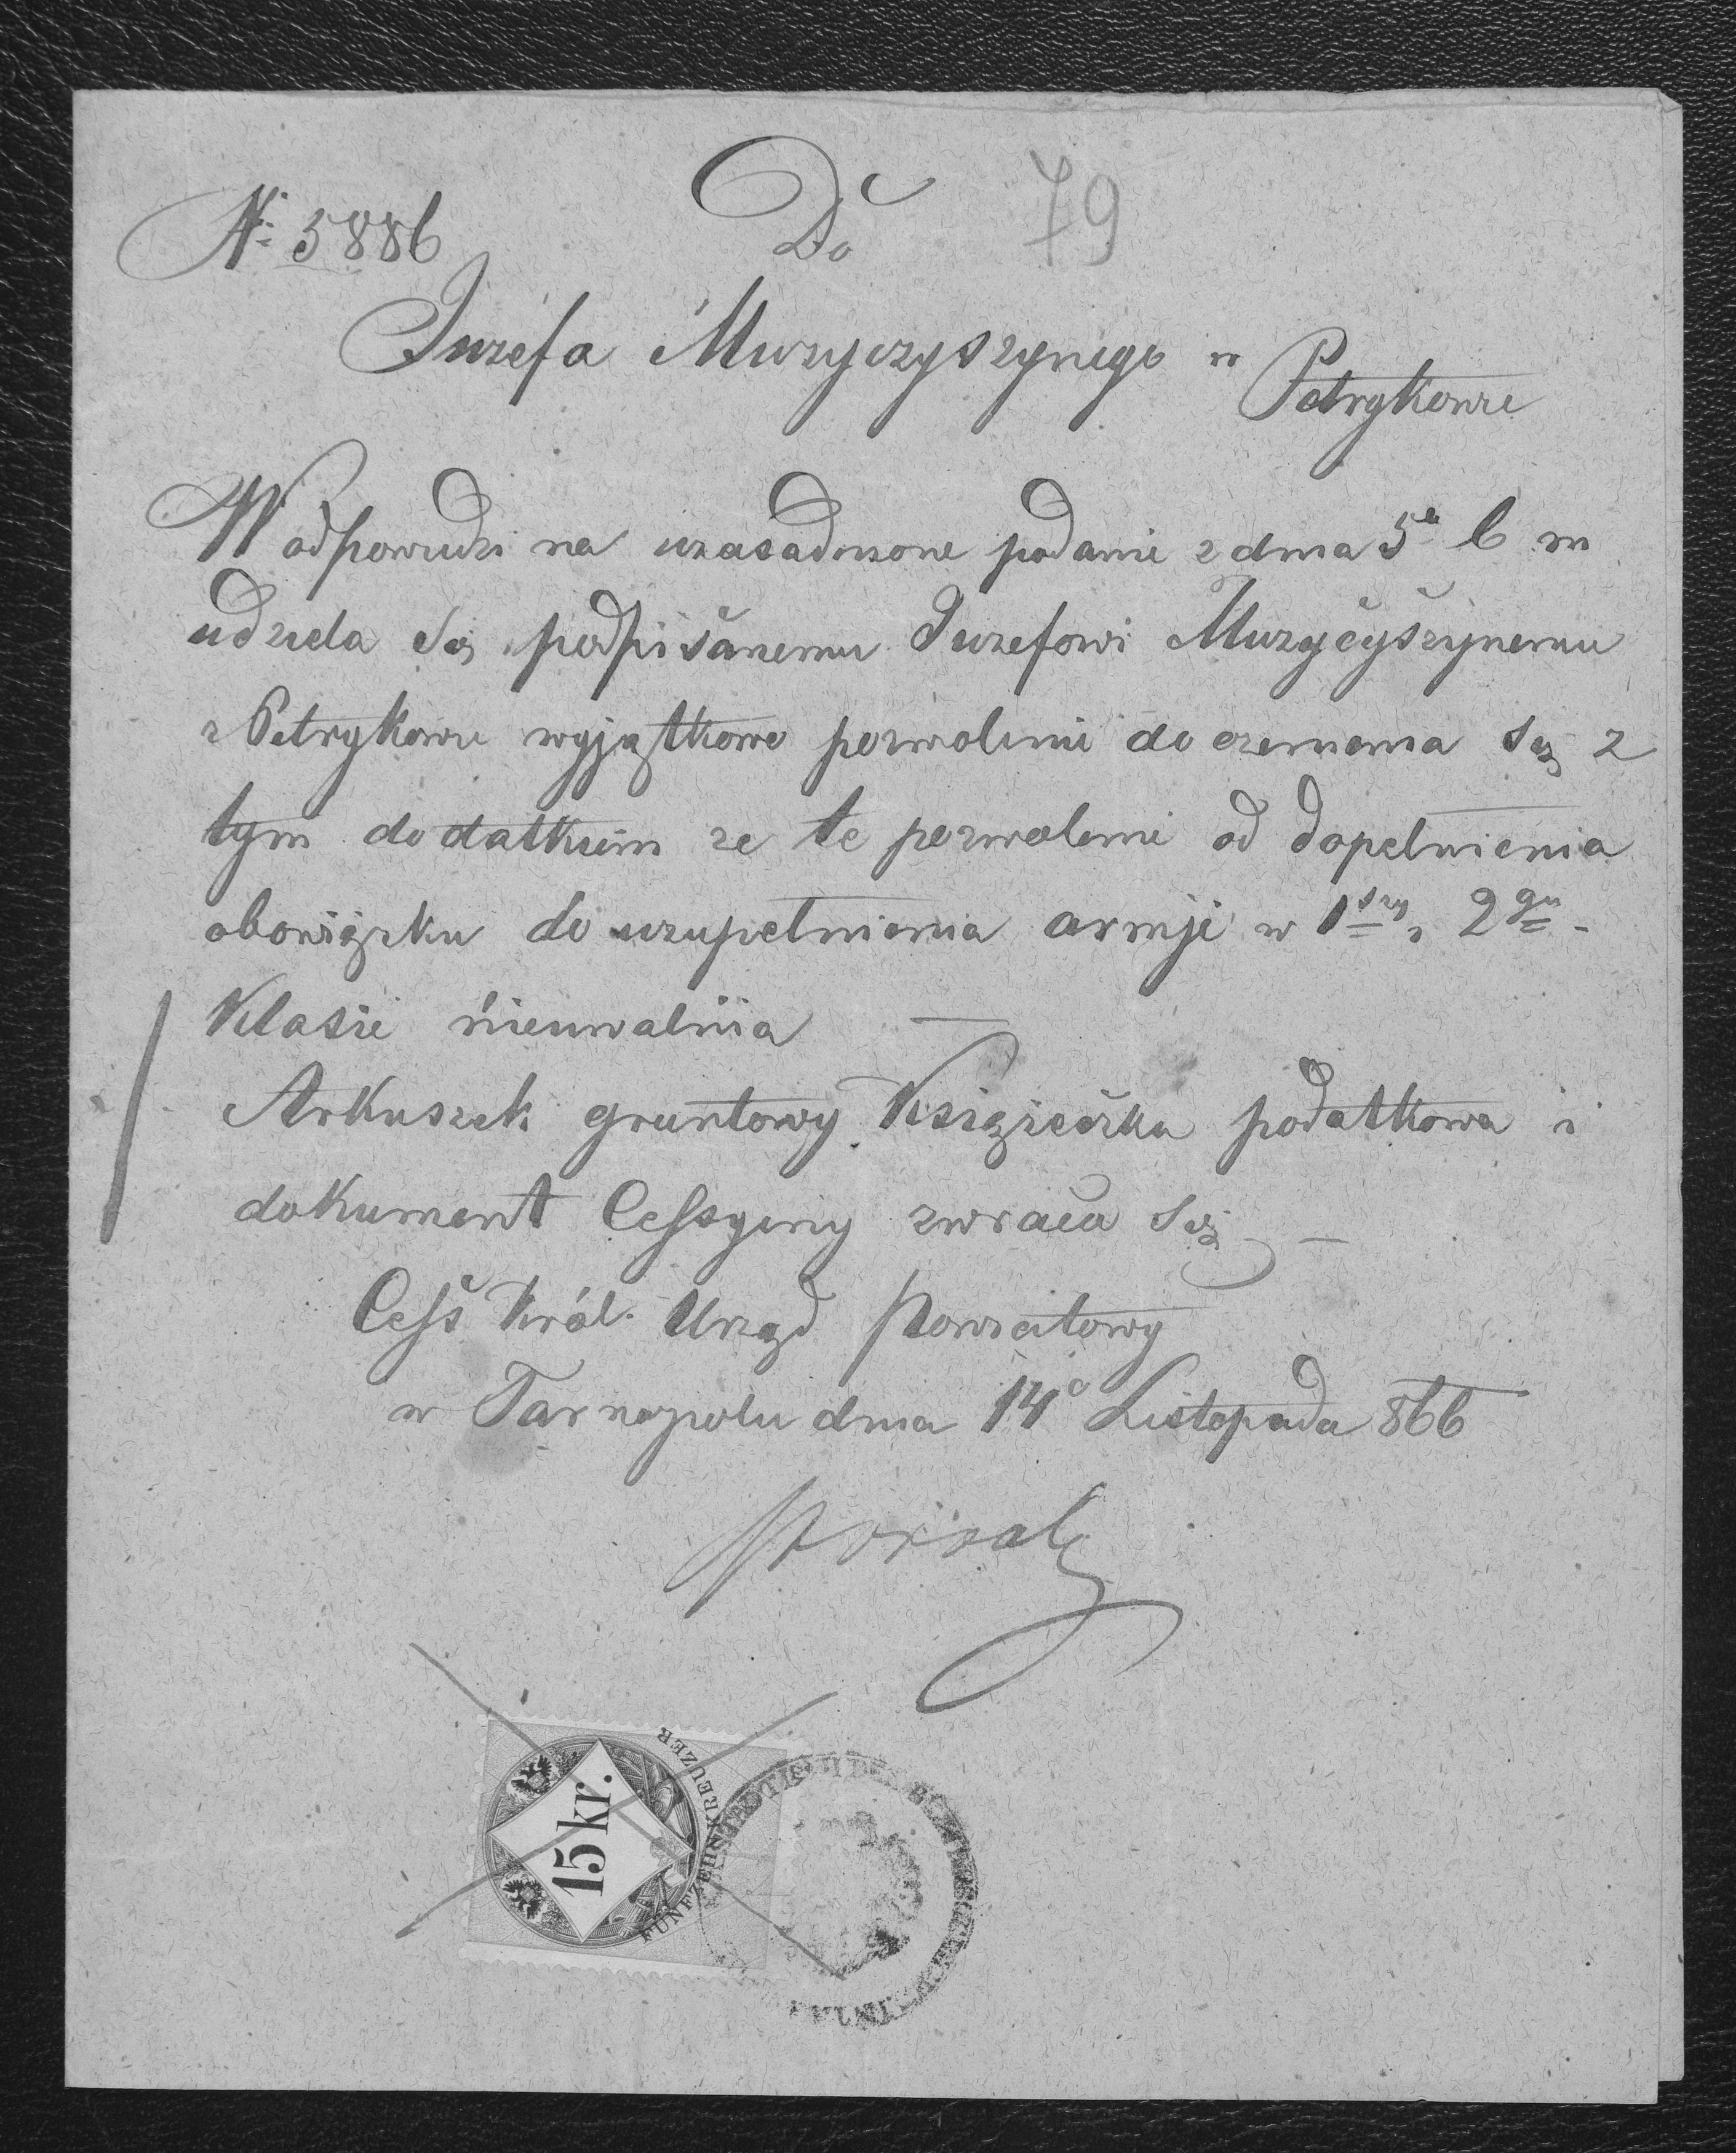 Do
79
№ 5886
Juzefa Muzyczyszynego w
Petrykowie
W odpowiedzi na uzasadnione podanie z dnia 5º b m
udziela się podpisanemu Juzefowi Muzyčyszynemu
z Petrykowu wyjątkowe pozwolenie do ozenienia się z
tym dodatkiem ze te pozwolenie od dopelnienia
obowiązku do uzupełnienia armji w 1szy i 2gu
Klasie nieuwalnia —
Arkuszek gruntowy Książeczka podatkowa i
dokument Cessyiny zwraca się —
Cess Król. Urząd Powiatowy
w Tarnopolu dnia 14º Listopada 866
15 kr.
FÜNFZEHN KREUZER